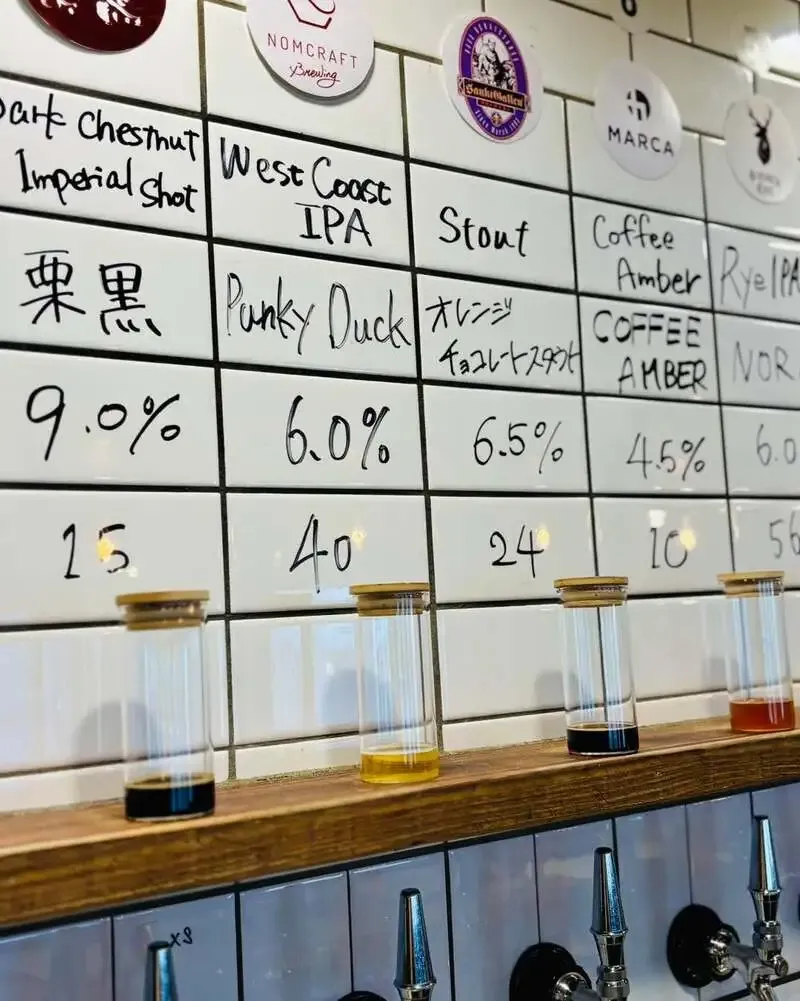 NOMCRAFT
Brewing
SanktGallen
MARCA
Dark Chestnut
Imperial Shot
West Coast
IPA
Stout
Coffee
Amber
Rye IPA
栗黒
Punky Duck
オレンジ
チョコレートスタウト
COFFEE
AMBER
NOR
9.0%
6.0%
6.5%
4.5%
6.0
15
40
24
10
56
x3